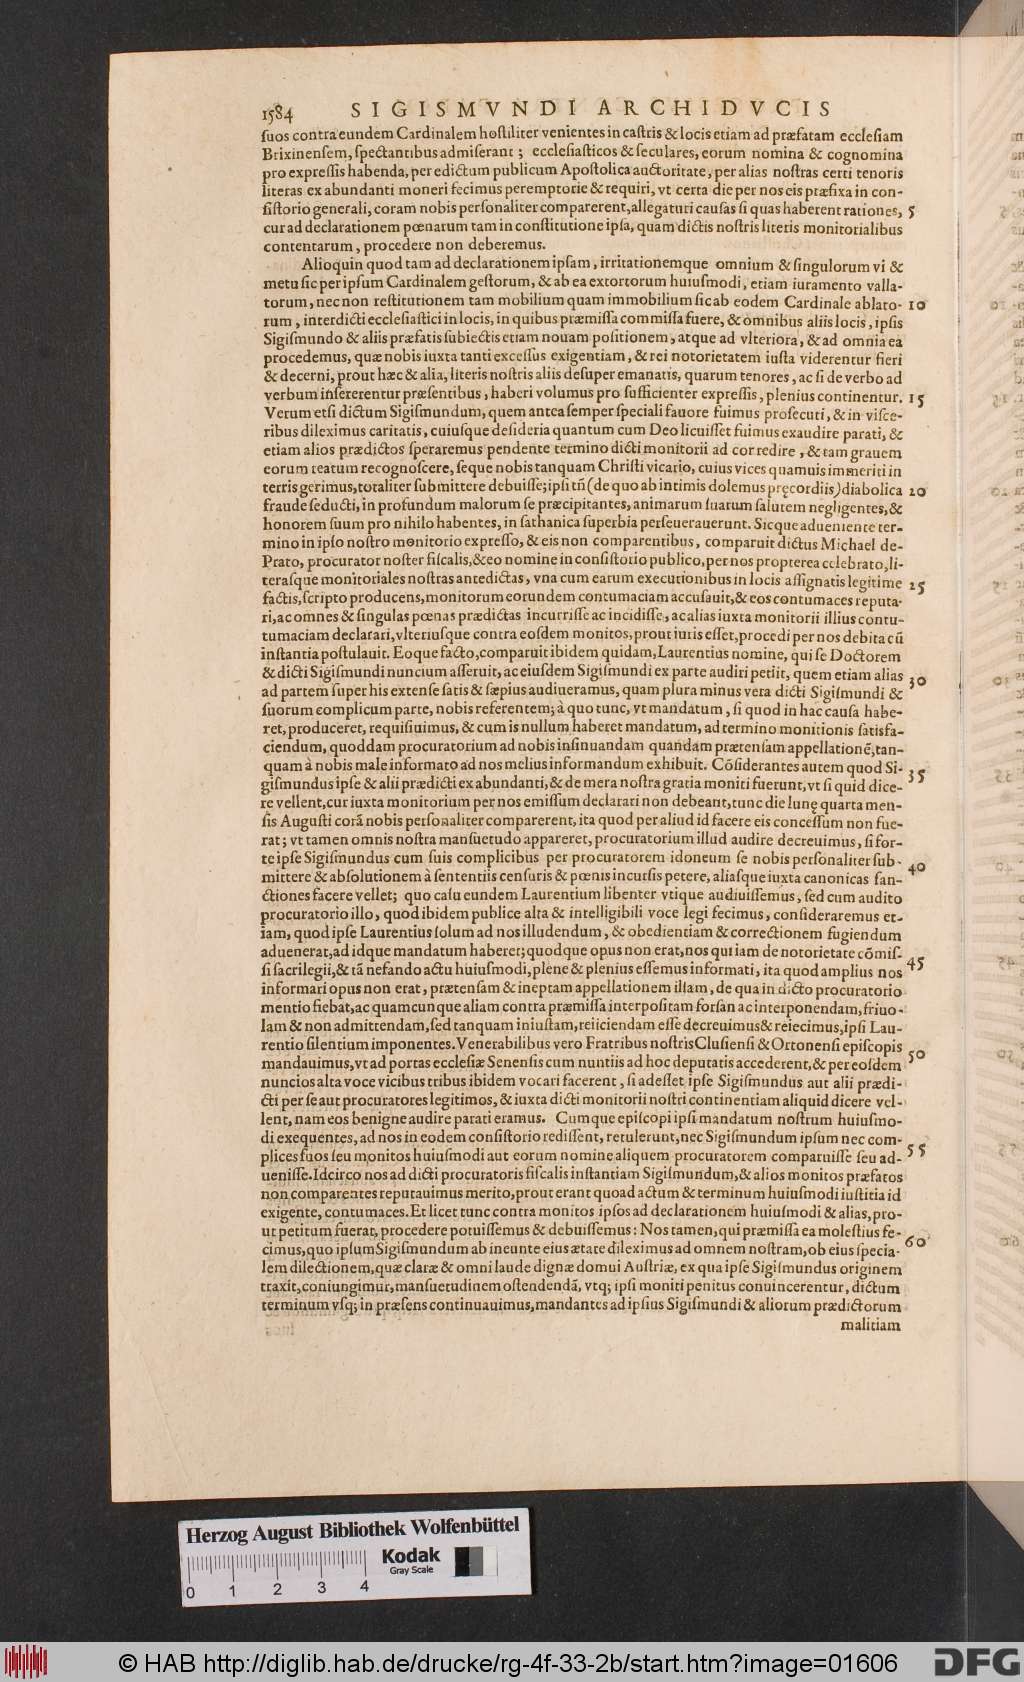 1584 SIGISMVNDI ARCHIDVCIS
ſuos contra eundem Cardinalem hoſtiliter venientes in caſtris & locis etiam ad præfatam eccleſiam
Brixinenſem, ſpectantibus admiſerant; eccleſiaſticos & ſeculares, eorum nomina & cognomina
pro expreſſis habenda, per edictum publicum Apoſtolica auctoritate, per alias noſtras certi tenoris
literas ex abundanti moneri fecimus peremptorie & requiri, vt certa die per nos eis præfixa in con-
ſiſtorio generali, coram nobis perſonaliter comparerent, allegaturi cauſas ſi quas haberent rationes, 5
cur ad declarationem pœnarum tam in conſtitutione ipſa, quam dictis noſtris literis monitorialibus
contentarum, procedere non deberemus.
Alioquin quod tam ad declarationem ipſam, irritationemque omnium & ſingulorum vi &
metu ſic per ipſum Cardinalem geſtorum, & ab ea extortorum huiuſmodi, etiam iuramento valla-
torum, nec non reſtitutionem tam mobilium quam immobilium ſic ab eodem Cardinale ablato- 10
rum, interdicti eccleſiaſtici in locis, in quibus præmiſſa commiſſa fuere, & omnibus aliis locis, ipſis
Sigiſmundo & aliis præfatis ſubiectis etiam nouam poſitionem, atque ad vlteriora, & ad omnia ea
procedemus, quæ nobis iuxta tanti exceſſus exigentiam, & rei notorietatem iuſta viderentur fieri
& decerni, prout hæc & alia, literis noſtris aliis deſuper emanatis, quarum tenores, ac ſi de verbo ad
verbum inſererentur præſentibus, haberi volumus pro ſufficienter expreſſis, plenius continentur. 15
Verum etſi dictum Sigiſmundum, quem antea ſemper ſpeciali fauore fuimus proſecuti, & in viſce-
ribus dileximus caritatis, cuiuſque deſideria quantum cum Deo licuiſſet fuimus exaudire parati, &
etiam alios prædictos ſperaremus pendente termino dicti monitorii ad cor redire, & tam grauem
eorum reatum recognoſcere, ſeque nobis tanquam Chriſti vicario, cuius vices quamuis immeriti in
terris gerimus, totaliter ſubmittere debuiſſe; ipſi tñ (de quo ab intimis dolemus pręcordiis) diabolica 20
fraude ſeducti, in profundum malorum ſe præcipitantes, animarum ſuarum ſalutem negligentes, &
honorem ſuum pro nihilo habentes, in ſathanica ſuperbia perſeuerauerunt. Sicque adueniente ter-
mino in ipſo noſtro monitorio expreſſo, & eis non comparentibus, comparuit dictus Michael de-
Prato, procurator noſter fiſcalis, & eo nomine in conſiſtorio publico, per nos propterea celebrato, li-
teraſque monitoriales noſtras antedictas, vna cum earum executionibus in locis aſſignatis legitime 25
factis, ſcripto producens, monitorum eorundem contumaciam accuſauit, & eos contumaces reputa-
ri, ac omnes & ſingulas pœnas prædictas incurriſſe ac incidiſſe, ac alias iuxta monitorii illius contu-
tumaciam declarari, vlteriuſque contra eoſdem monitos, prout iuris eſſet, procedi per nos debita cũ
inſtantia poſtulauit. Eoque facto, comparuit ibidem quidam, Laurentius nomine, qui ſe Doctorem
& dicti Sigiſmundi nuncium aſſeruit, ac eiuſdem Sigiſmundi ex parte audiri petiit, quem etiam alias 30
ad partem ſuper his extenſe ſatis & ſæpius audiueramus, quam plura minus vera dicti Sigiſmundi &
ſuorum complicum parte, nobis referentem; à quo tunc, vt mandatum, ſi quod in hac cauſa habe-
ret, produceret, requiſiuimus, & cum is nullum haberet mandatum, ad termino monitionis ſatisfa-
ciendum, quoddam procuratorium ad nobis inſinuandam quandam prætenſam appellationẽ, tan-
quam à nobis male informato ad nos melius informandum exhibuit. Cõſiderantes autem quod Si- 35
giſmundus ipſe & alii prædicti ex abundanti, & de mera noſtra gratia moniti fuerunt, vt ſi quid dice-
re vellent, cur iuxta monitorium per nos emiſſum declarari non debeant, tunc die lunę quarta men-
ſis Auguſti corã nobis perſonaliter comparerent, ita quod per aliud id facere eis conceſſum non fue-
rat; vt tamen omnis noſtra manſuetudo appareret, procuratorium illud audire decreuimus, ſi for-
te ipſe Sigiſmundus cum ſuis complicibus per procuratorem idoneum ſe nobis perſonaliter ſub- 40
mittere & abſolutionem à ſententiis cenſuris & pœnis incurſis petere, aliaſque iuxta canonicas ſan-
ctiones facere vellet; quo caſu eundem Laurentium libenter vtique audiuiſſemus, ſed cum audito
procuratorio illo, quod ibidem publice alta & intelligibili voce legi fecimus, conſideraremus et-
iam, quod ipſe Laurentius ſolum ad nos illudendum, & obedientiam & correctionem fugiendum
aduenerat, ad idque mandatum haberet; quodque opus non erat, nos qui iam de notorietate cõmiſ-
ſi ſacrilegii, & tã nefando actu huiuſmodi, plene & plenius eſſemus informati, ita quod amplius nos 45
informari opus non erat, prætenſam & ineptam appellationem illam, de qua in dicto procuratorio
mentio fiebat, ac quamcunque aliam contra præmiſſa interpoſitam forſan ac interponendam, friuo-
lam & non admittendam, ſed tanquam iniuſtam, reiiciendam eſſe decreuimus & reiecimus, ipſi Lau-
rentio ſilentium imponentes. Venerabilibus vero Fratribus noſtris Cluſienſi & Ortonenſi epiſcopis
mandauimus, vt ad portas eccleſiæ Senenſis cum nuntiis ad hoc deputatis accederent, & per eoſdem 50
nuncios alta voce vicibus tribus ibidem vocari facerent, ſi adeſſet ipſe Sigiſmundus aut alii prædi-
cti per ſe aut procuratores legitimos, & iuxta dicti monitorii noſtri continentiam aliquid dicere vel-
lent, nam eos benigne audire parati eramus. Cumque epiſcopi ipſi mandatum noſtrum huiuſmo-
di exequentes, ad nos in eodem conſiſtorio rediſſent, retulerunt, nec Sigiſmundum ipſum nec com-
plices ſuos ſeu monitos huiuſmodi aut eorum nomine aliquem procuratorem comparuiſſe ſeu ad- 55
ueniſſe. Idcirco nos ad dicti procuratoris fiſcalis inſtantiam Sigiſmundum, & alios monitos præfatos
non comparentes reputauimus merito, prout erant quoad actum & terminum huiuſmodi iuſtitia id
exigente, contumaces. Et licet tunc contra monitos ipſos ad declarationem huiuſmodi & alias, pro-
ut petitum fuerat, procedere potuiſſemus & debuiſſemus: Nos tamen, qui præmiſſa ea moleſtius fe-
cimus, quo ipſum Sigiſmundum ab ineunte eius ætate dileximus ad omnem noſtram, ob eius ſpecia- 60
lem dilectionem, quæ claræ & omni laude dignæ domui Auſtriæ, ex qua ipſe Sigiſmundus originem
traxit, coniungimur, manſuetudinem oſtendendã, vtq; ipſi moniti penitus conuincerentur, dictum
terminum vſq; in præſens continuauimus, mandantes ad ipſius Sigiſmundi & aliorum prædictorum
malitiam
Herzog August Bibliothek Wolfenbüttel
Kodak
Gray Scale
0 1 2 3 4
© HAB http://diglib.hab.de/drucke/rg-4f-33-2b/start.htm?image=01606
DFG